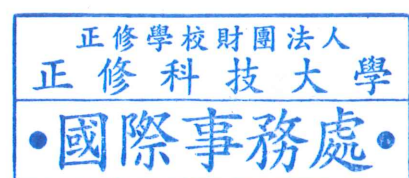 正修學校財團法人
正修科技大學
•國際事務處•